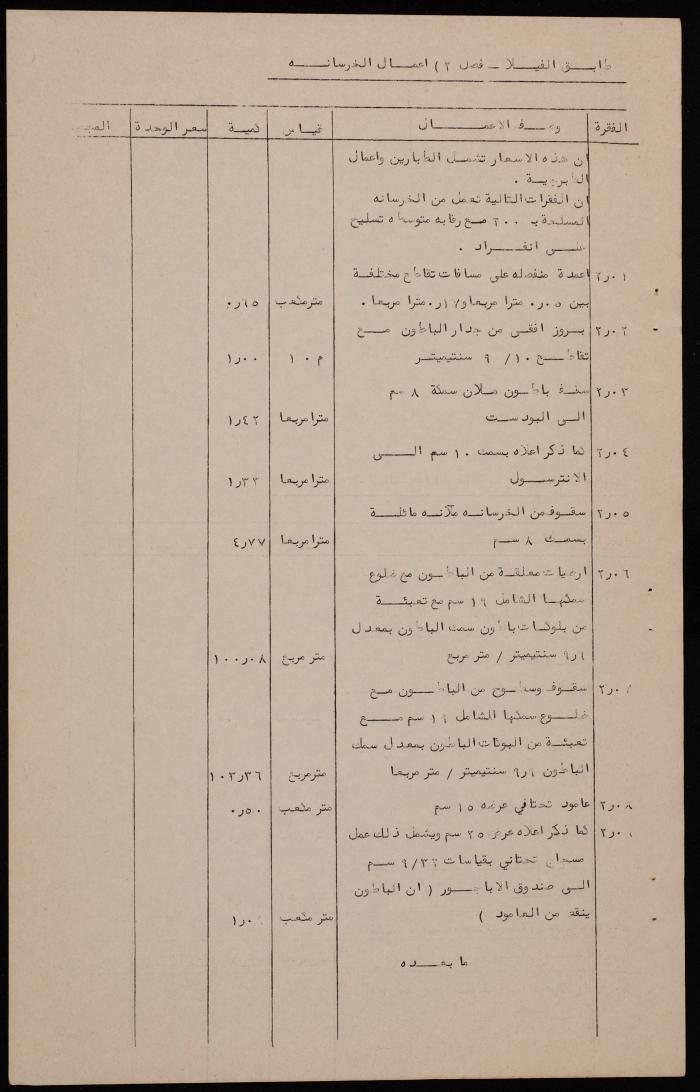 طابق الفيلا - فصل ٢) اعمال الخرسانه
الفقرة وصف الاعمال قياس كمية سعر الوحدة
ان هذه الاسعار تشمل الطبارين واعمال
الطبرجية .
ان الفقرات التالية تعمل من الخرسانه
المسلحة ب ٢٠٠ مع رقابه متوسطه تسليح
على انفراد .
٢٫٠١ اعمدة منفصله على مسافات تقاطع مختلفة
بين ٠٫٠٥ مترا مربعا و ٠٫١٧ مترا مربعا . متر مكعب ٠٫٦٥
٢٫٠٢ بروز افقي من جدار الباطون مع
تقاطع ١٠ / ٩ سنتيميتر م ١٠ ١٫٠٠
٢٫٠٣ سقف باطون ملان سمكة ٨ سم
الى البودست مترا مربعا ١٫٤٢
٢٫٠٤ كما ذكر اعلاه بسمك ١٠ سم الى
الانترسول مترا مربعا ١٫٣٣
٢٫٠٥ سقوف من الخرسانه ملآنه مائلة
بسمك ٨ سم مترا مربعا ٤٫٧٧
٢٫٠٦ ارضيات معلقة من الباطون مع ضلوع
سمكها الشامل ١٩ سم مع تعبئة
من بلوكات باطون سمك الباطون بمعدل
٩٫٦ سنتيميتر / متر مربع متر مربع ١٠٠٫٠٨
سقوف وسطوح من الباطون مع
ضلوع سمكها الشامل سم مع
تعبئة من البوكات الباطون بمعدل سمك
الباطون ٩٫٦ سنتيميتر / متر مربعا متر مربع ١٠٣٫٣٦
٢٫٠٨ عامود تحتافي عرضه ١٥ سم متر مكعب ٠٫٥٠
كما ذكر اعلاه عرض ٢٥ سم ويشمل ذلك عمل
تحتاني بقياسات ٩/٣٢ سم
الى صندوق الاباجور ( ان الباطون
ينقص من العامود ) متر مكعب
ما بعده